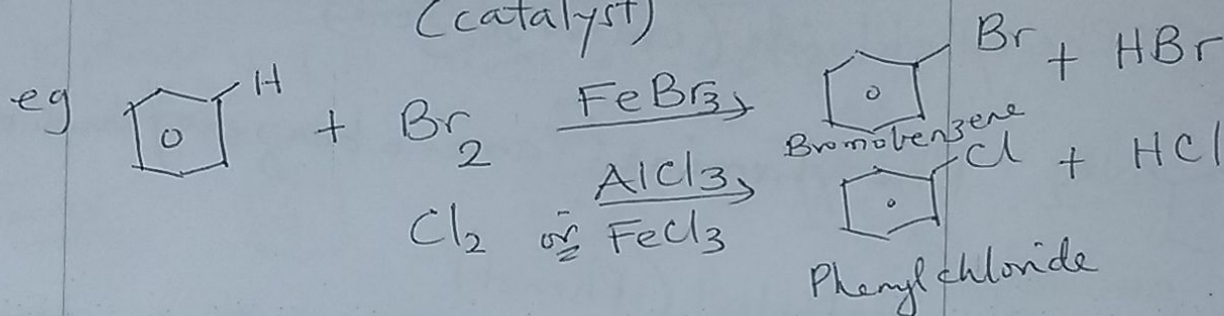 (catalyst)
eg H + Br2 FeBr3 Br + HBr
Bromobenzene
Cl2 or AlCl3 FeCl3 Cl + HCl
Phenyl chloride